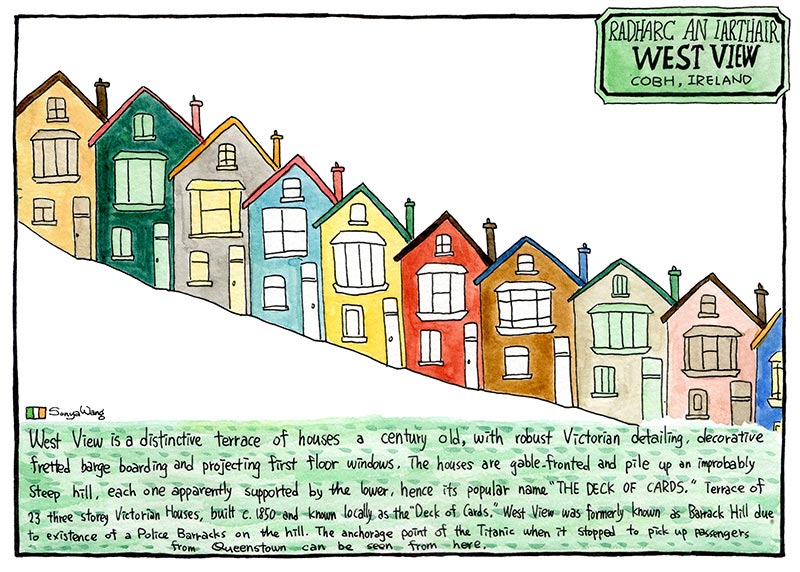 RADHARC AN IARTHAIR
WEST VIEW
COBH, IRELAND
SonyaWang
West View is a distinctive terrace of houses a century old, with robust Victorian detailing, decorative
fretted barge boarding and projecting first floor windows. The houses are gable-fronted and pile up an improbably
steep hill, each one apparently supported by the lower, hence its popular name "THE DECK OF CARDS." Terrace of
23 three storey Victorian Houses, built c.1850 and known locally as the "Deck of Cards." West View was formerly known as Barrack Hill due
to existence of a Police Barracks on the hill. The anchorage point of the Titanic when it stopped to pick up passengers
from Queenstown can be seen from here.